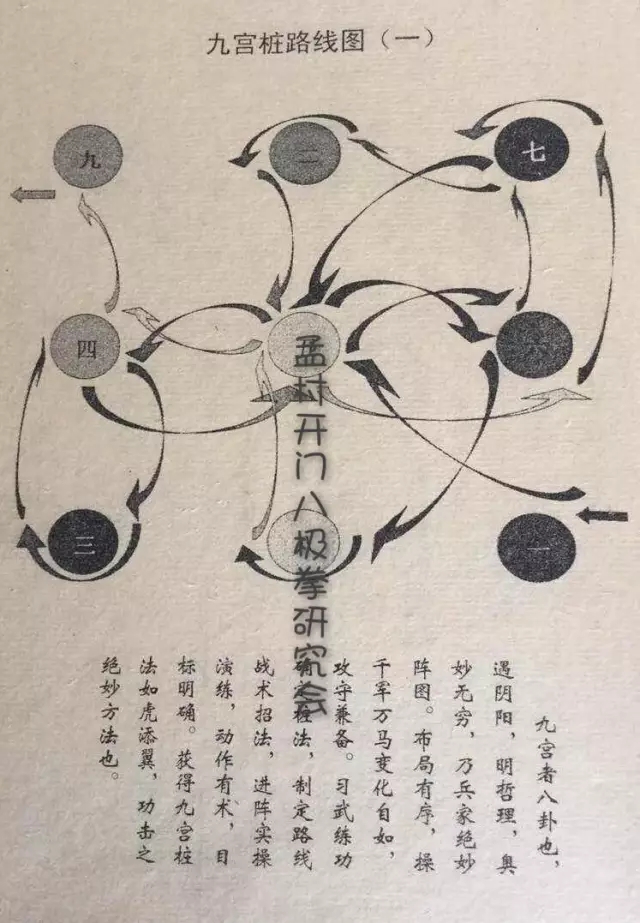 九宫桩路线图（一）
九
二
七
四
六
三
一
孟村开门八极拳研究会
九宫者八卦也，
遇阴阳，明哲理，奥
妙无穷，乃兵家绝妙
阵图。布局有序，操
千军万马变化自如，
攻守兼备。习武练功
确定桩法，制定路线
战术招法，进阵实操
演练，动作有术，目
标明确。获得九宫桩
法如虎添翼，功击之
绝妙方法也。